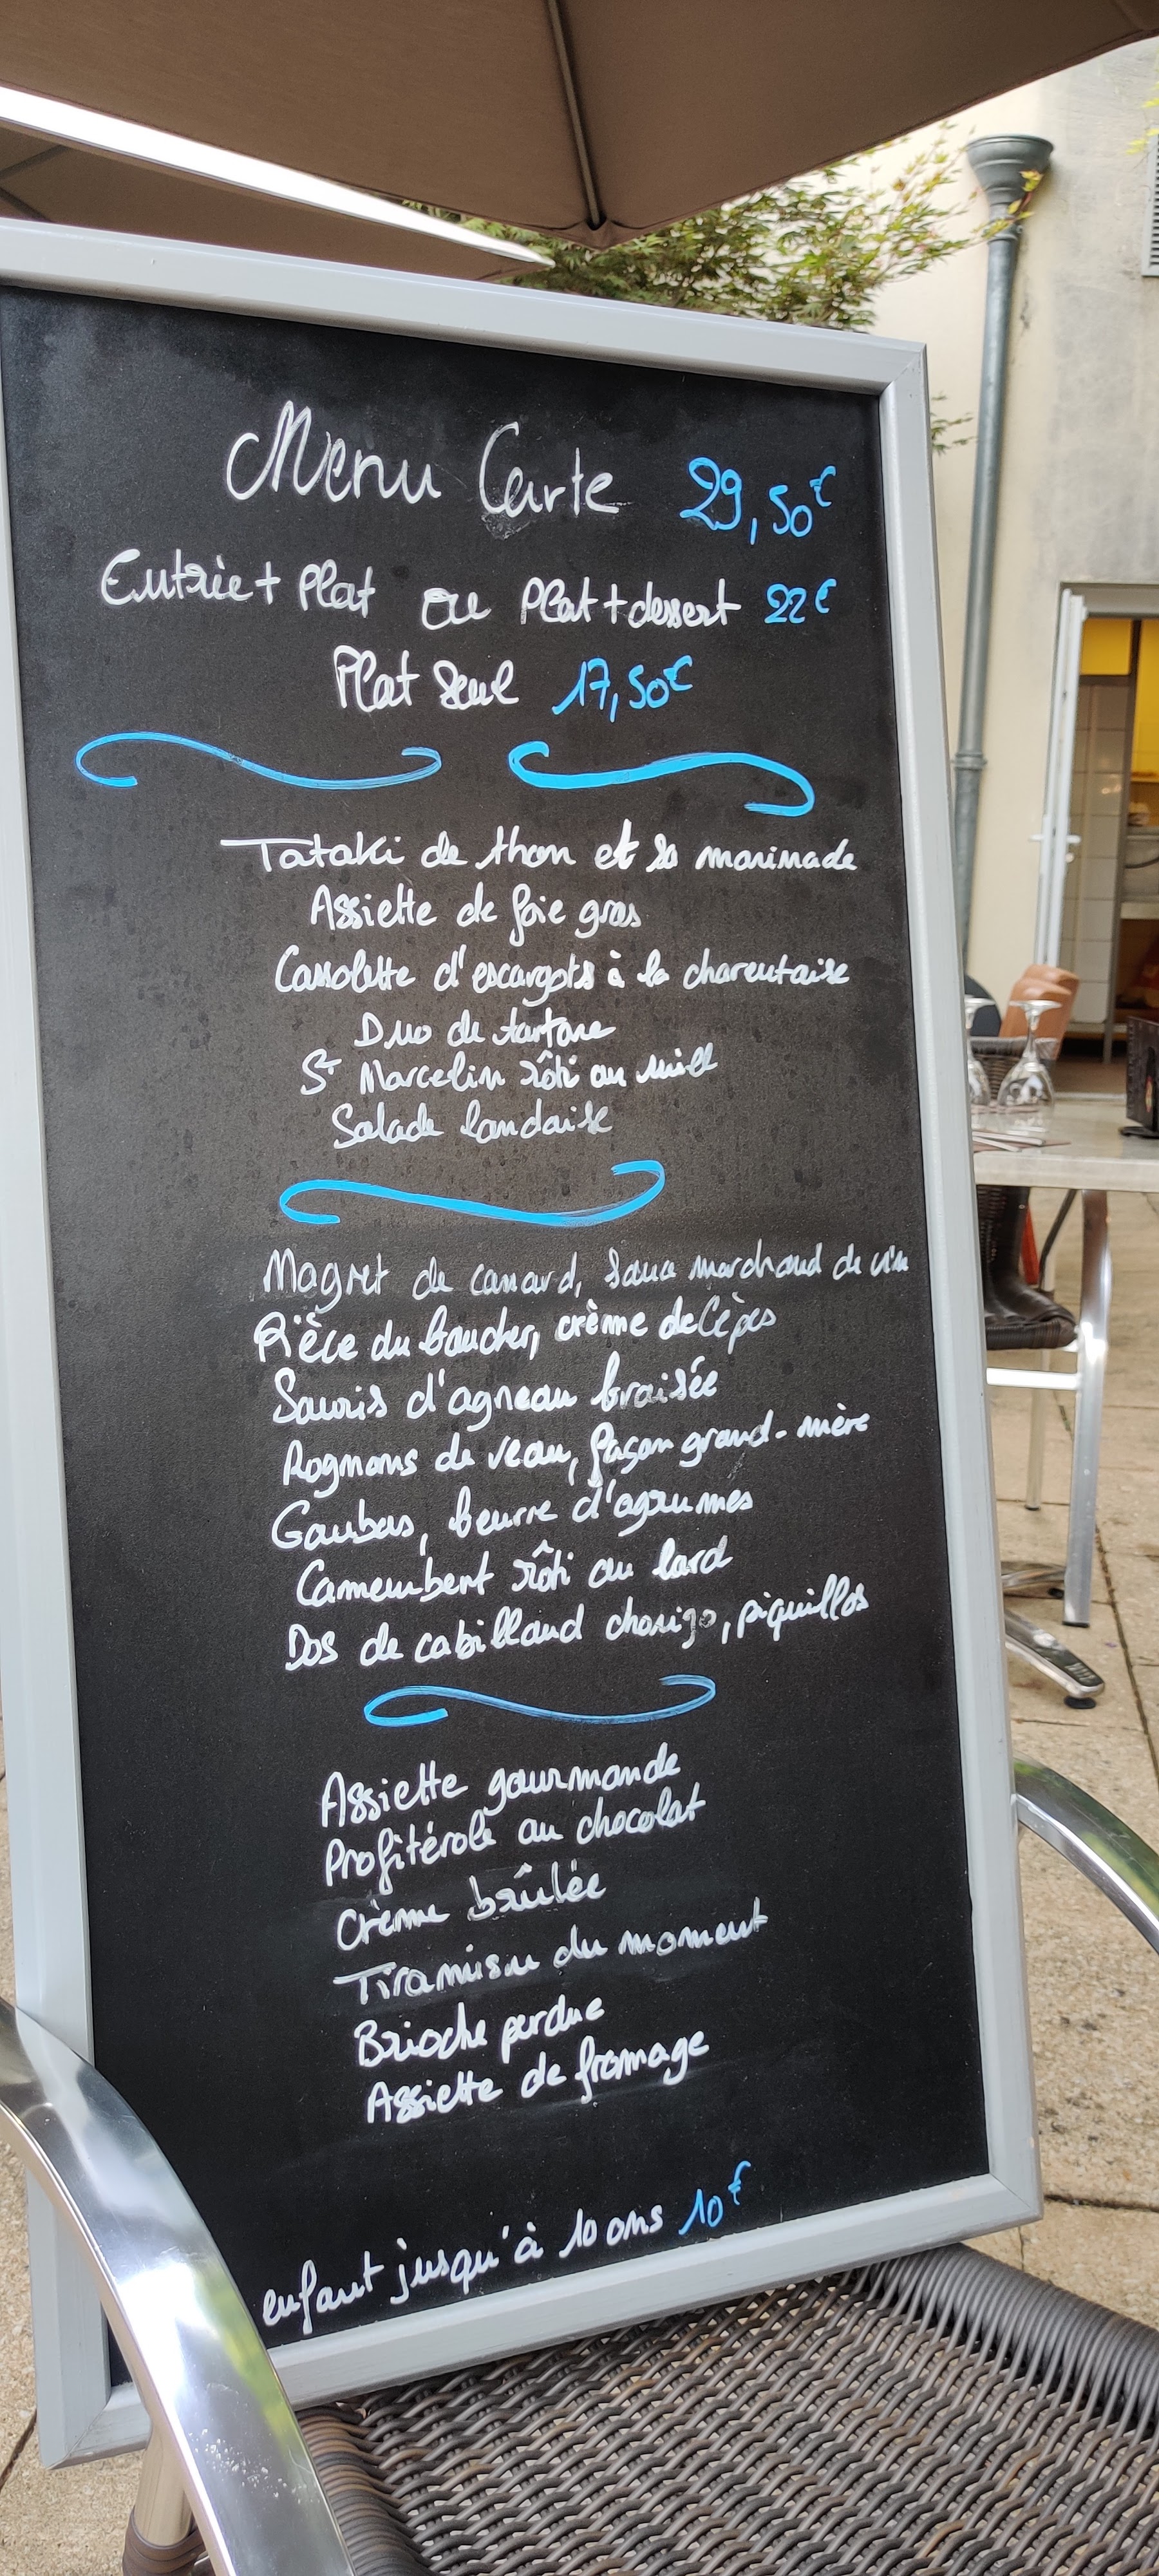 Menu Carte 29,50€
Entrée + Plat ou Plat + dessert 22€
Plat seul 17,50€
Tataki de thon et sa marinade
Assiette de foie gras
Cassolette d'escargots à la charentaise
Duo de tartare
St Marcelin rôti au miel
Salade landaise
Magret de canard, sauce marchand de vin
Pièce du boucher, crème de Cèpes
Souris d'agneau braisée
Rognons de veau, façon grand-mère
Gambas, beurre d'agrumes
Camembert rôti au lard
Dos de cabillaud chorizo, piquillos
Assiette gourmande
Profitérole au chocolat
Crème brûlée
Tiramisu du moment
Brioche perdue
Assiette de fromage
enfant jusqu'à 10 ans 10€